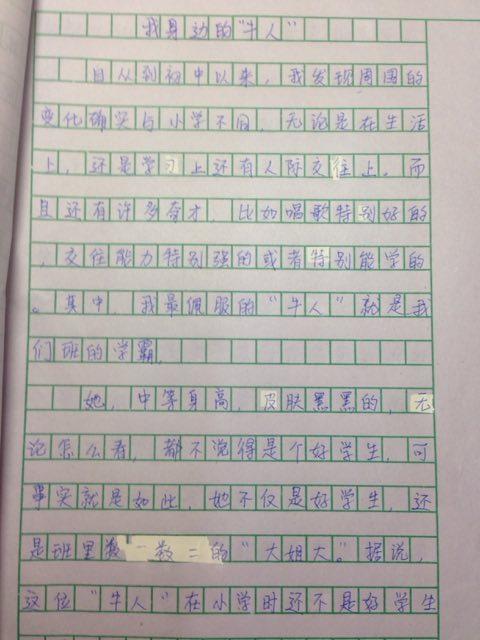 我身边的“牛人”
自从到初中以来，我发现周围的
变化确实与小学不同，无论是在生活
上，还是学习上还有人际交往上。而
且还有许多奇才，比如唱歌特别好的
，交往能力特别强的或者特别能学的
。其中，我最佩服的“牛人”就是我
们班的学霸，
她，中等身高，皮肤黑黑的，无
论怎么看，都不说得是个好学生，可
事实就是如此，她不仅是好学生，还
是班里数一数二的“大姐大”。据说，
这位“牛人”在小学时还不是好学生